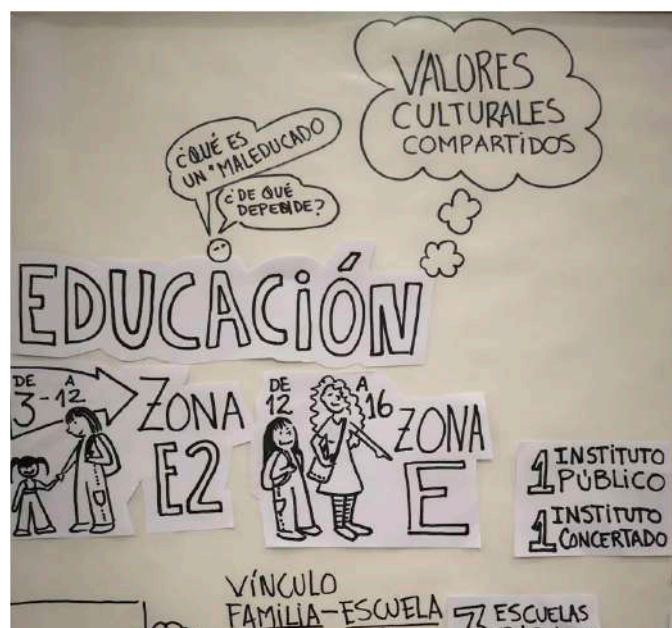 VALORES
CULTURALES
COMPARTIDOS
¿QUÉ ES
UN "MALEDUCADO
¿DE QUÉ
DEPENDE?
EDUCACIÓN
DE
3-12
A
ZONA
E2
DE
12
A
16
ZONA
E
1 INSTITUTO
PÚBLICO
1 INSTITUTO
CONCERTADO
VÍNCULO
FAMILIA-ESCUELA
3 ESCUELAS